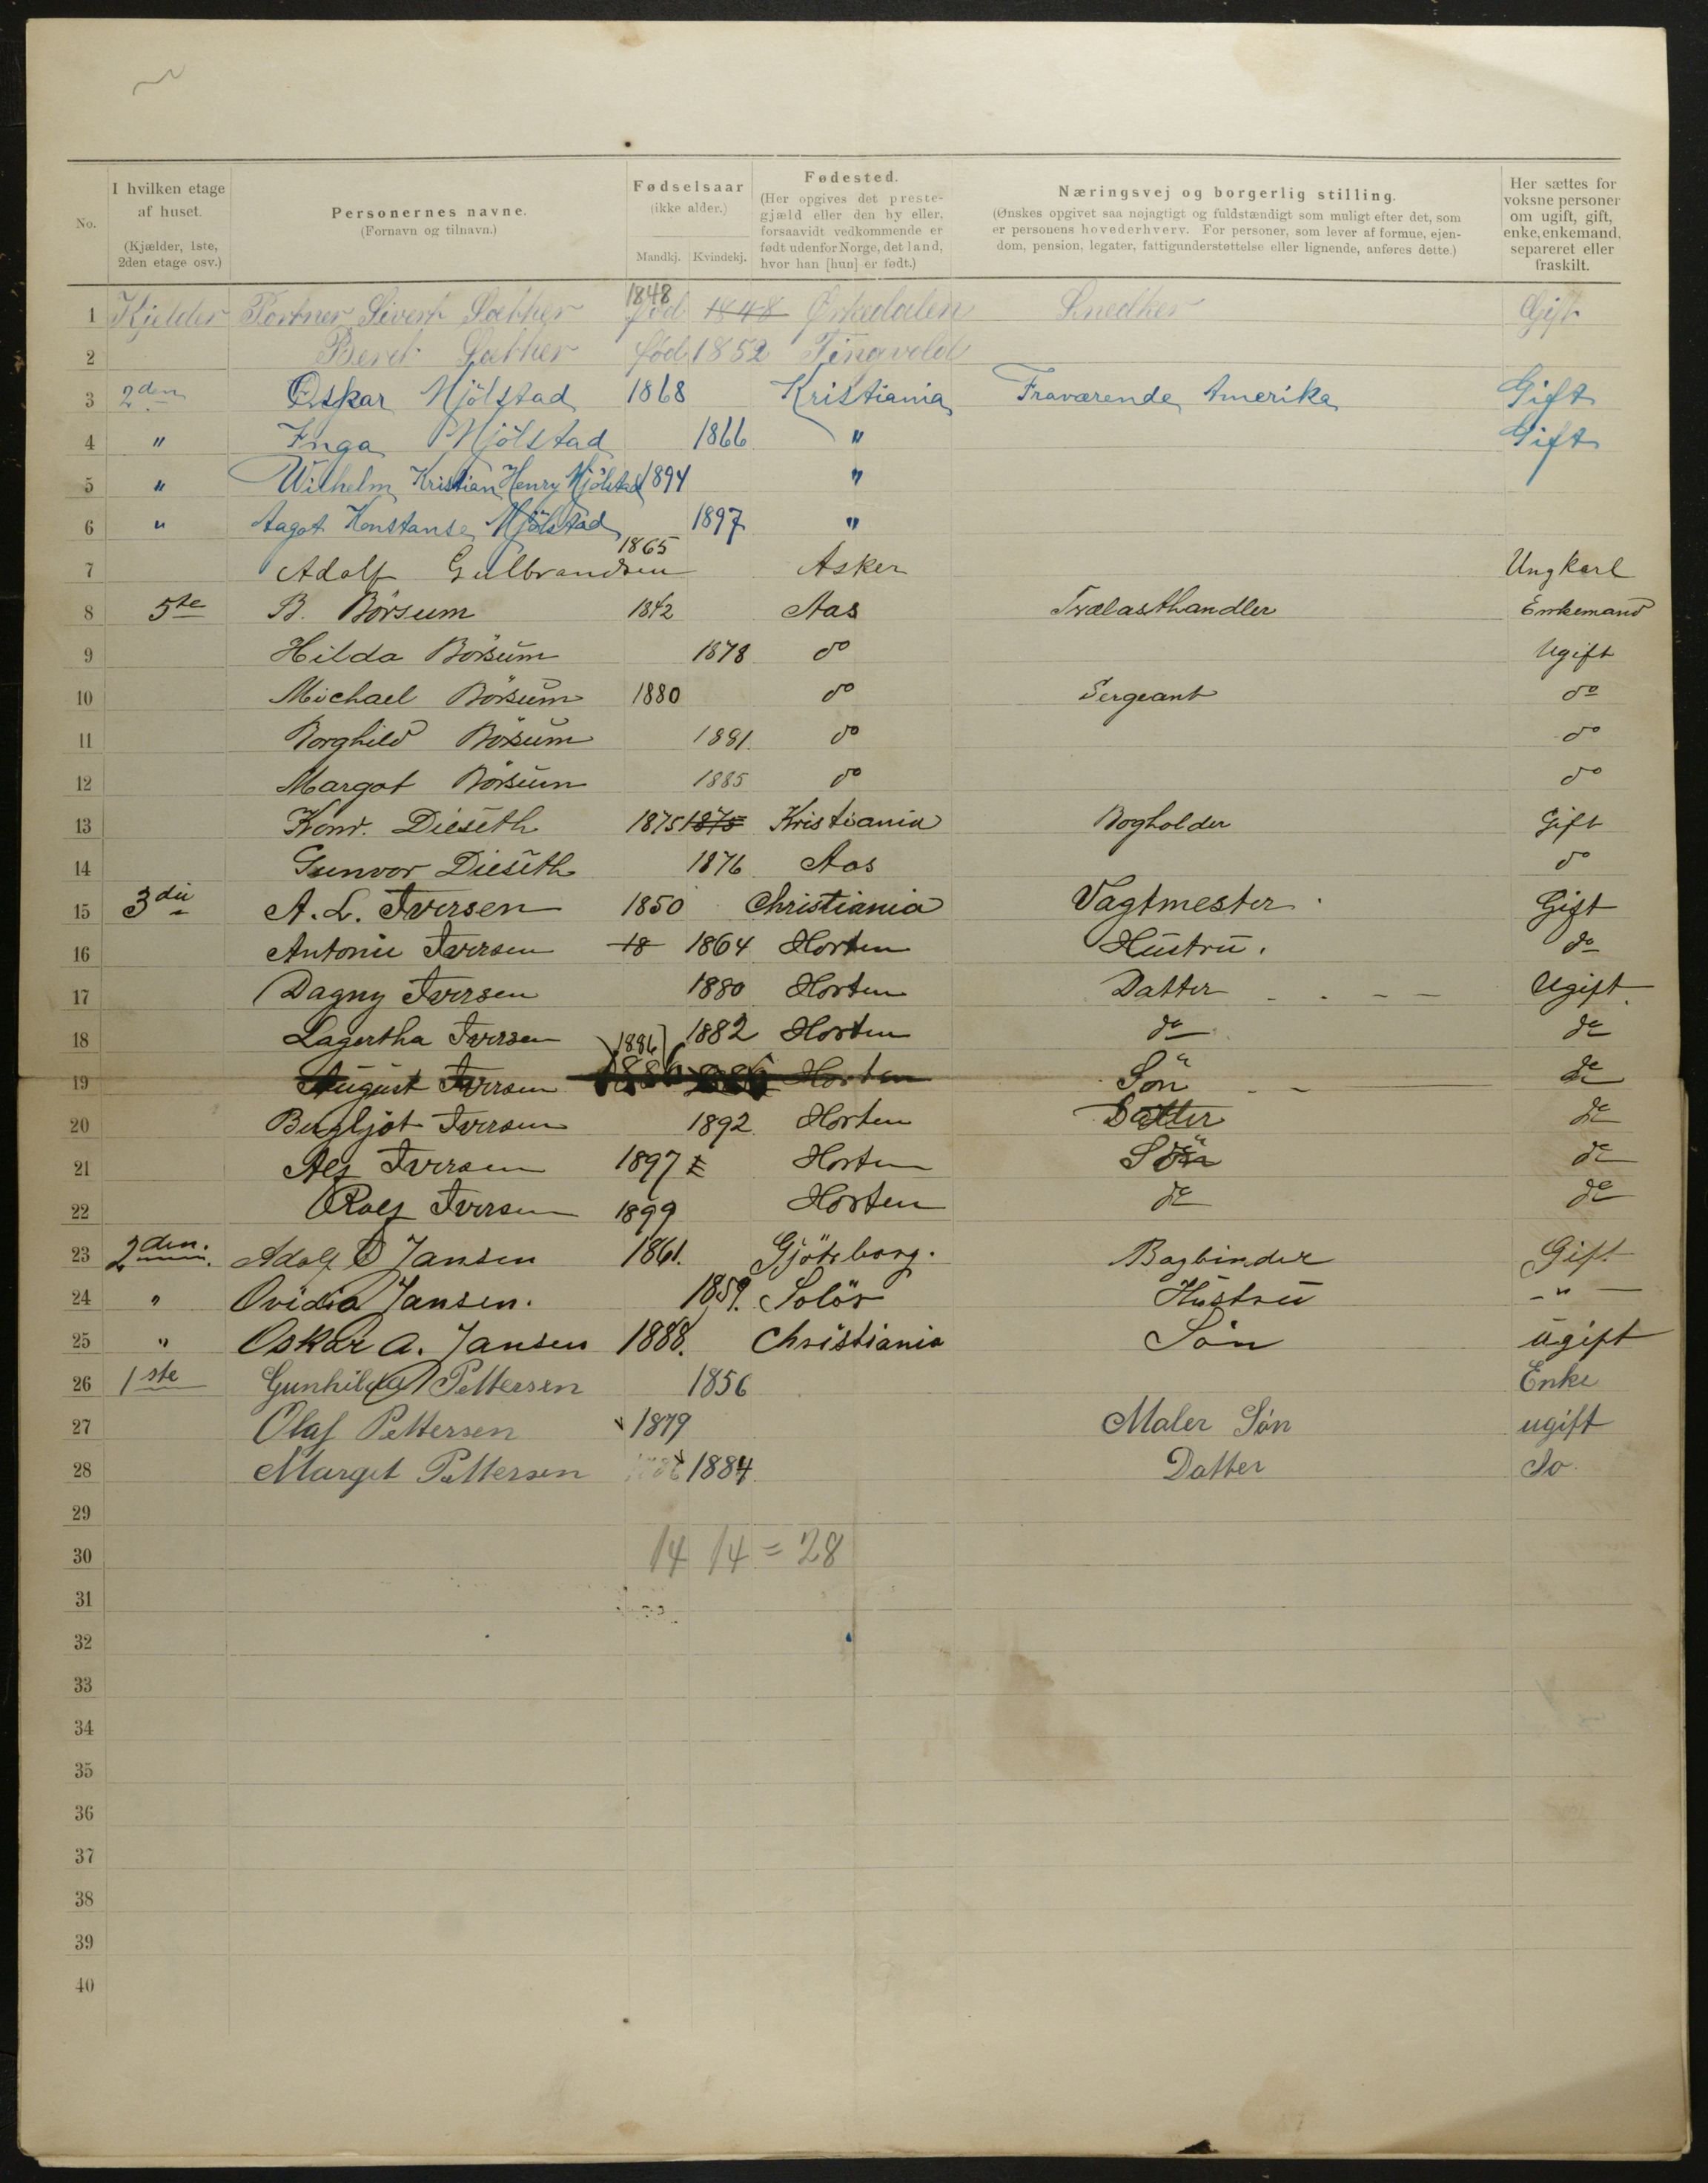 No.
I hvilken etage af huset. (Kjælder, 1ste, 2den etage osv.)
Personernes navne. (Fornavn og tilnavn.)
Fødselsaar (ikke alder.) Mandkj. Kvindekj.
Fødested. (Her opgives det prestegjæld eller den by eller, forsaavidt vedkommende er født udenfor Norge, det land, hvor han [hun] er født.)
Næringsvej og borgerlig stilling. (Ønskes opgivet saa nøjagtigt og fuldstændigt som muligt efter det, som er personens hovederhverv. For personer, som lever af formue, ejendom, pension, legater, fattigunderstøttelse eller lignende, anføres dette.)
Her sættes for voksne personer om ugift, gift, enke, enkemand, separeret eller fraskilt.
1 Kjelder Portner Sivert Sæther 1848 fød 1848 Ørkedalen Snedker Gift
2 Berit Sæther fød 1852 Tingvold
3 2den Oskar Mjölstad 1868 Kristiania Fraværende Amerika Gift
4 " Inga Mjölstad 1866 " Gift
5 " Wilhelm Kristian Henry Mjölstad 1894 "
6 " Aagot Konstanse Mjölstad 1897 "
7 Adolf Gulbrandsen 1865 Asker Ungkarl
8 5te B. Börsum 1842 Aas Trælasthandler Enkemand
9 Hilda Börsum 1878 do Ugift
10 Michael Börsum 1880 do Sergeant do
11 Borghild Börsum 1881. do do
12 Margot Börsum 1885 do do
13 Konr. Dieseth 1875 1875 Kristiania Bogholder Gift
14 Gunvor Dieseth 1876 Aas do
15 3die A. L. Iversen 1850 Christiania Vagtmester. Gift
16 Antonie Iversen 18 1864 Horten Hustru. do
17 Dagny Iversen 1880 Horten Datter Ugift
18 Lagertha Iversen 1882 Horten do do
19 August Iversen 1886 1886 Horten Sön do
20 Bergljot Iversen 1892 Horten Datter do
21 Alf Iversen 1897 Horten Sön do
22 Rolf Iversen 1899 Horten do do
23 2den. Adolf O Jansen 1861. Gjöteborg. Bogbinder Gift
24 " Ovidia Jansen. 1859. Solör Hustru - " -
25 " Oskar A. Jansen 1888. Christiania Sön ugift
26 1ste Gunhild Pettersen 1856 Enke
27 Olaf Pettersen 1879 Maler Sön ugift
28 Margit Pettersen 1884 Datter do.
29
30 14 14 = 28
31
32
33
34
35
36
37
38
39
40